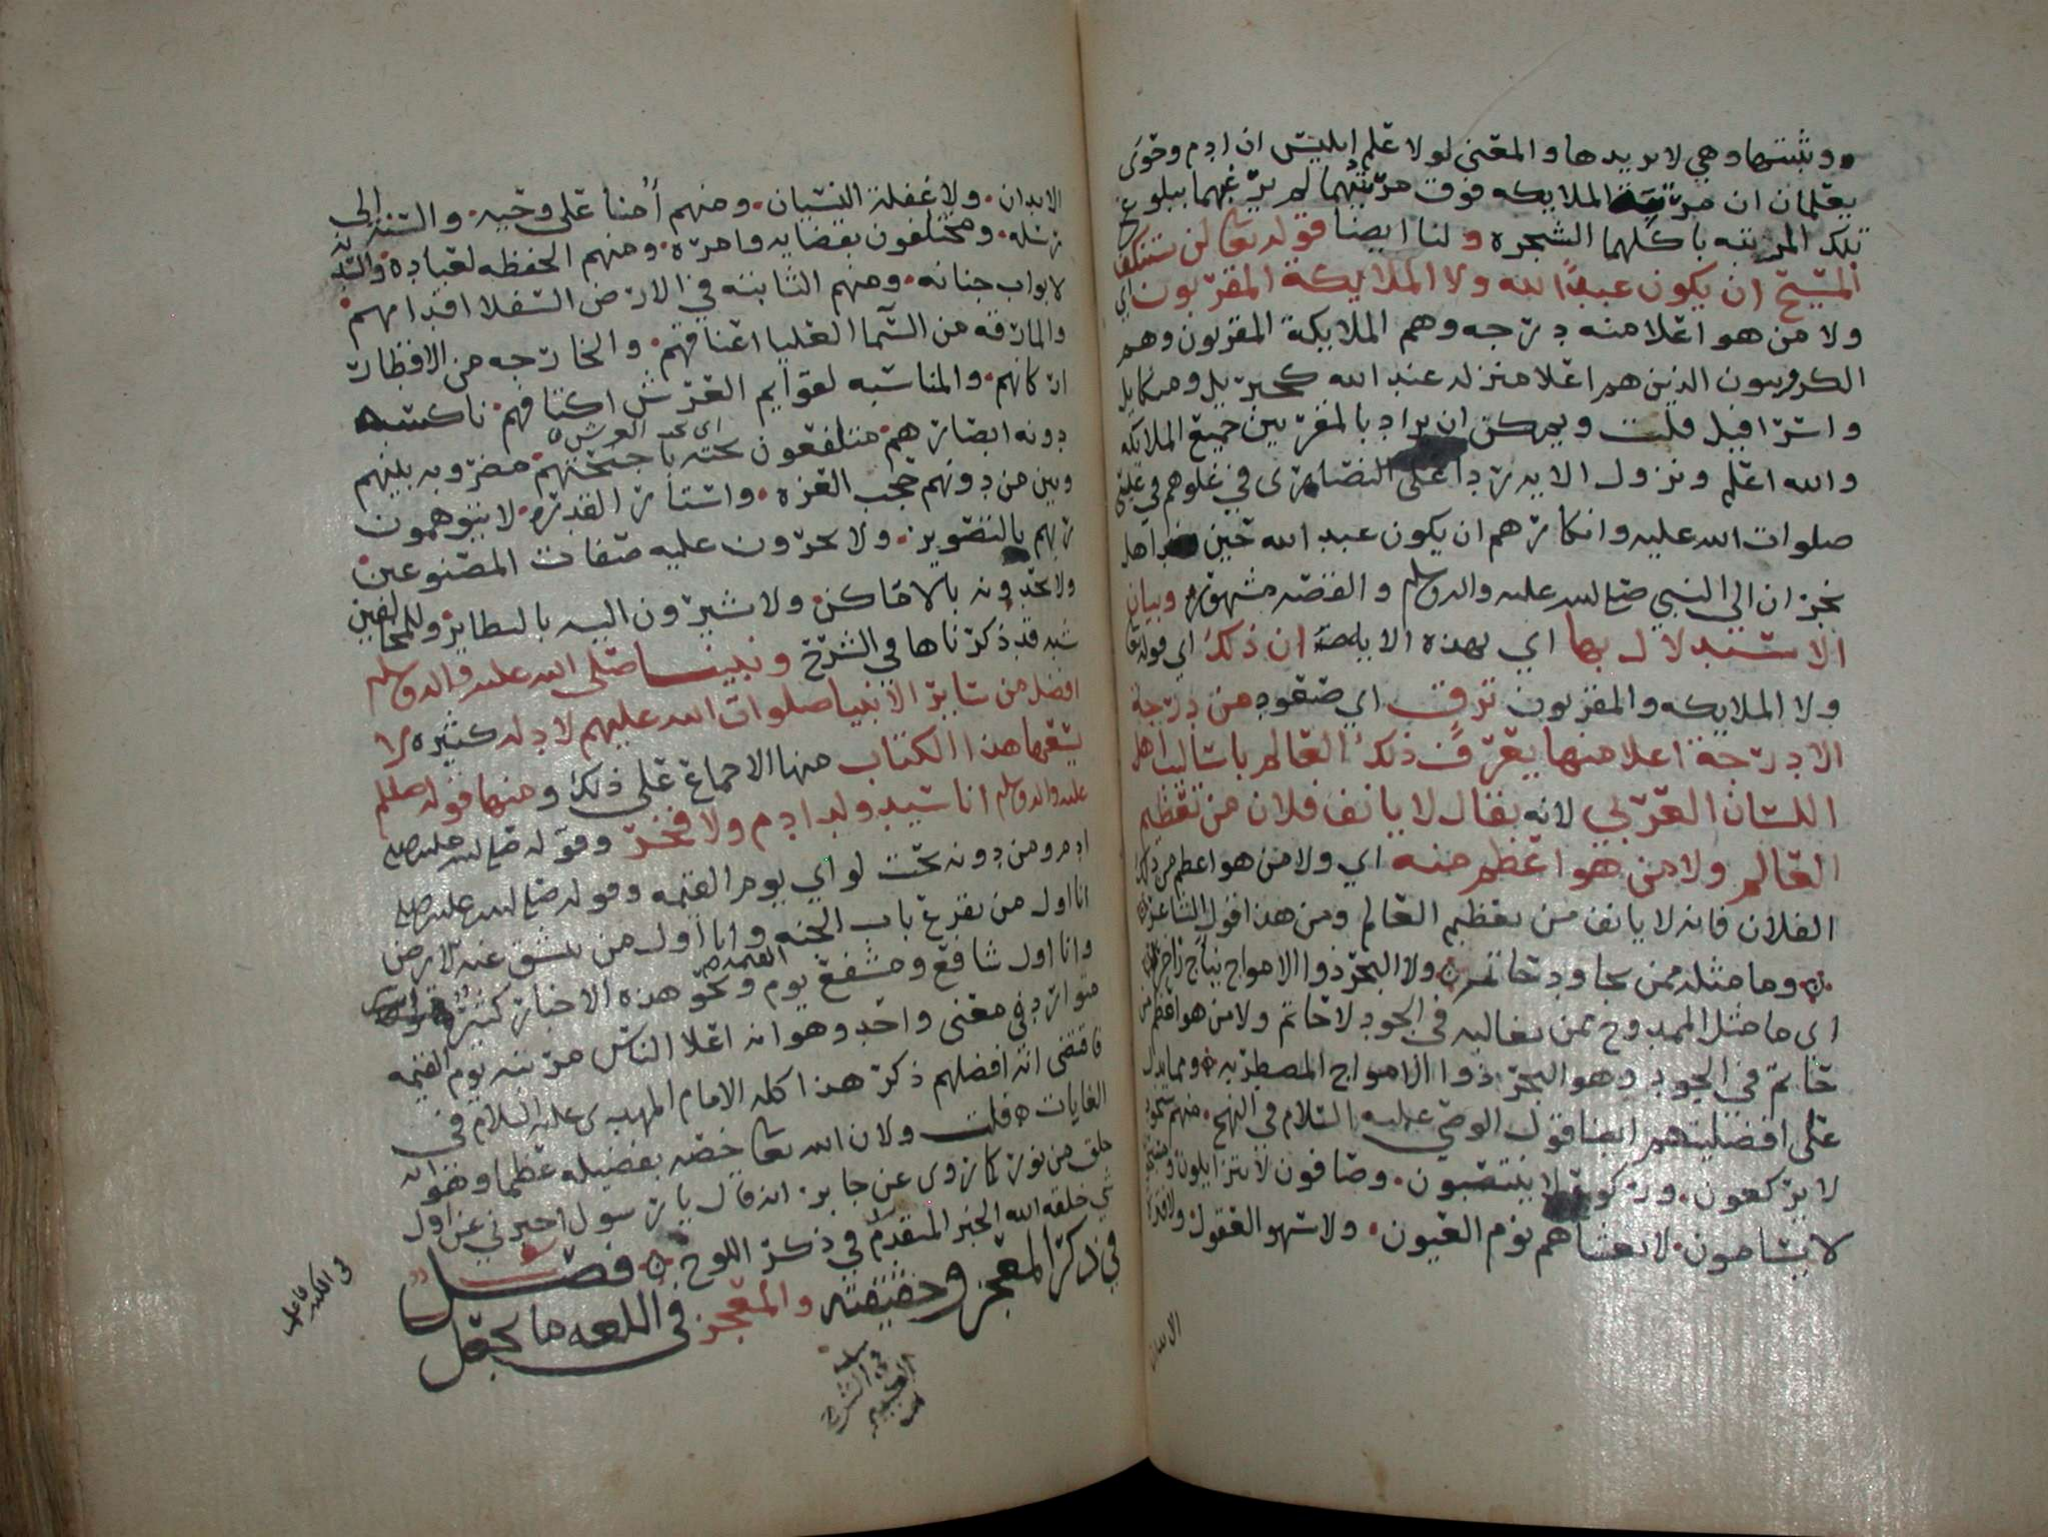 وثبتتها وهي لا يريدها والمعنى لولا علم إبليس ان ادم وحوى
يعلمان ان مرتبة الملايكه فوق مرتبتهما لم يرغبهما ببلوغ
تلك المرتبه باكلهما الشجره ولنا ايضا قوله تعا لن يستنكف
المسيح ان يكون عبدًا لله ولا الملايكة المقربون اي
ولا من هو اعلا منه درجه وهم الملايكة المقربون وهم
الكروبيون الذين هم اعلا منزله عند الله كجبريل وميكايل
واسرافيل قلت ويمكن ان يراد بالمقربين جميع الملائكه
والله اعلم ونزول الايه ردا على النصارى في غلوهم في عيسى
صلوات الله عليه وانكارهم ان يكون عبد الله حين اهل
نجران الى النبي صلى الله عليه واله وسلم والقصه مشهوره وبيان
الاستدلال بها اي بهذه الايه ان ذلك اي قوله تعا
ولا الملايكه والمقربون ترقٍ اي صعود من درجة
الا درجة اعلا منها يعرف ذلك العالم باساليب اهل
اللسان العربي لانه يقال لا يانف فلان من تعظيم
العالم ولا من هو اعظم منه اي ولا من هو اعظم من ذلك
الفلان فانه لا يانف من تعظيم العالم ومن هذا قول الشاعر
وما مثله ممن يجاود حاتم ولا البحر ذوا الامواج زاخره
اى ما مثل الممدوح ممن يغالبه في الجود لا حاتم ولا من هو اعظم من
حاتم في الجود وهو البحر ذوا الامواج المضطربه ومما يدل
على افضليتهم ايضا قول الوصي عليه السلام في النهج منهم سجود
لا يركعون وركوع لا ينتصبون وصافون لا يتزايلون ومسبحون
لا يسامون لا يغشاهم نوم العيون ولا سهو العقول ولا فترة
الابدان
الابدان ولا غفلة النسيان ومنهم أمنا على وحيه والسنه إلى
رسله ومختلفون بقضايه وامره ومنهم الحفظه لعباده والسدنه
لابواب جنانه ومنهم الثابته في الارض السفلا اقدامهم
والمارقه من السما العليا اعناقهم والخارجه من الاقطار
اركانهم والمناسبه لقوايم العرش اكتافهم ناكسه
دونه ابصارهم متلفعون تحته باجنحتهم مضروبه بينهم
اى تحت العرش
وبين من دونهم حجب العزه واستار القدره لا يتوهمون
ربهم بالتصوير ولا يجرون عليه صفات المصنوعين
ولا يحدونه بالاماكن ولا يشيرون اليه بالنظاير وللمخالفين
شبه قد ذكرناها في الشرح ونبينا صلى الله عليه واله وسلم
افضل من ساير الانبيا صلوات الله عليهم لادله كثيره لا
يسعها هذا الكتاب منها الاجماع على ذلك ومنها قوله صلى الله
عليه واله وسلم انا سيد ولد ادم ولا فخر وقوله صلى الله عليه
ادم ومن دونه تحت لواي يوم القيمه وقوله صلى الله عليه
انا اول من يقرع باب الجنه وانا اول من تنشق عنه الارض
وانا اول شافع ومشفع يوم القيمه ونحو هذه الاخبار كثيره
متوارد في معنى واحد وهو انه اعلا الناس مرتبه يوم القيمه
فاقتضى انه افضلهم ذكر هذا كله الامام المهدي عليه السلام في
الغايات قلت ولان الله تعا خصه بفضيله عظما وهو انه
خلق من نور كما روى عن جابر انه قال يا رسول اخبرني عن اول
شي خلقه الله الخبر المتقدم في ذكر اللوح فصل
في ذكر المعجز وحقيقته والمعجز في اللغه ما يجعل